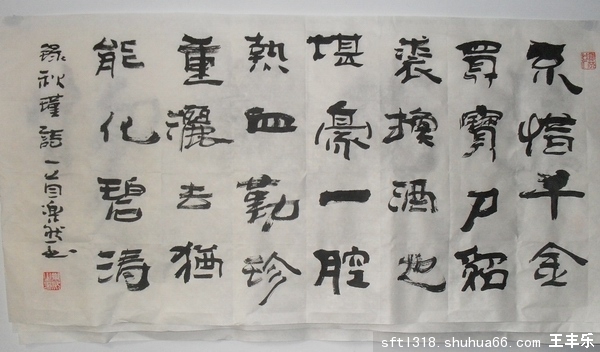 不惜千金
買寶刀貂
裘換酒也
堪豪一腔
熱血勤珍
重灑去猶
能化碧濤
錄秋瑾詩一首
sftl318.shuhua66.com 王丰乐